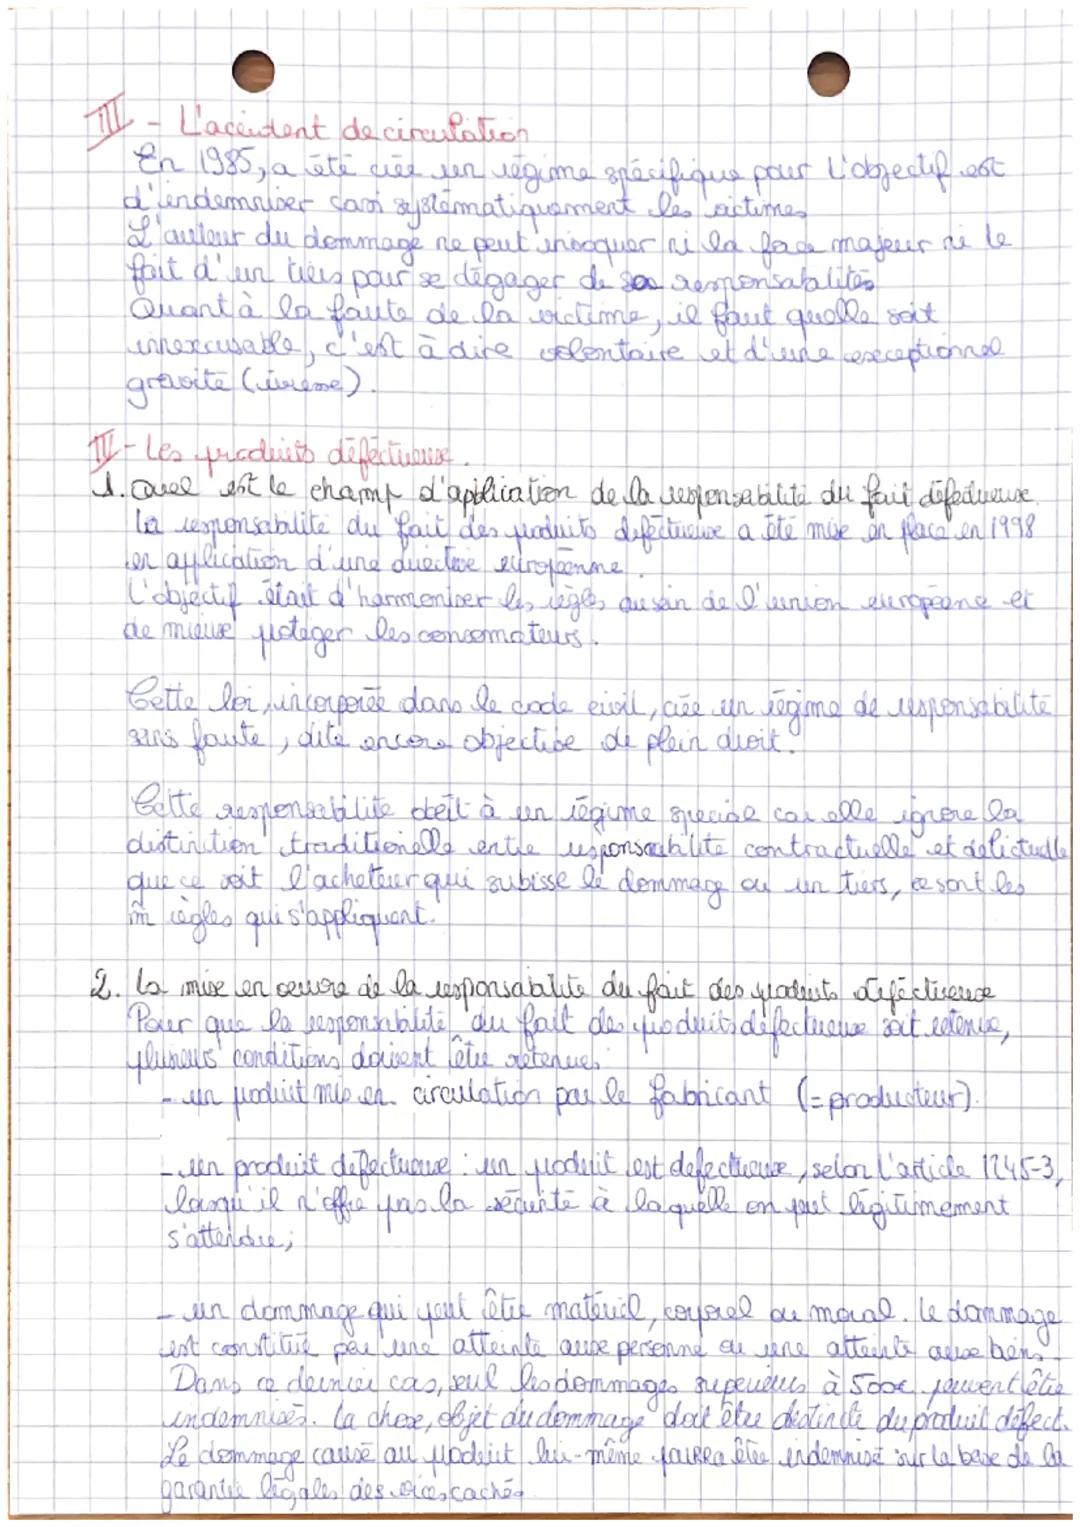 III - L'accident de circulation
En 1985, a été crée un régime spécifique pour L'objectif est
d'indemniser casi systématiquement les victimes
L'auteur du dommage ne peut invoquer ni la force majeur ni le
fait d'un tiers pour se dégager de sa responsabilités
Quant à la faute de la victime, il faut quelle soit
innexcusable, c'est à dire volontaire et d'une exceptionnel
gravité (ivresse).
III - Les produits défectueux.
1. Quel est le champ d'application de la responsabilité du fait défectueux
la responsabilité du fait des produits défectueux a été mise en place en 1998
en application d'une directive européenne.
L'objectif était d'harmoniser les règles au sein de l'union européene et
de mieux protéger les consomateurs.
Cette loi, incorporée dans le code civil, crée un régime de responsabilité
sans faute, dite encore objective de plein droit.
Cette responsabilité obéit à un régime spécial car elle ignore la
distinction traditionelle entre responsabilité contractuelle et délictuelle
que ce soit l'acheteur qui subisse le dommage ou un tiers, ce sont les
m̂ règles qui s'appliquent.
2. la mise en oeuvre de la responsabilité du fait des produits défectueux
Pour que la responsabilité du fait des produits défectueux soit retenue,
plusieurs conditions doivent être retenues:
- un produit mis en circulation par le fabricant (=producteur).
- un produit défectueux : un produit est défectueux, selon l'article 1245-3,
lorsqu'il n'offre pas la sécurité à laquelle on peut légitimement
s'attendre;
- un dommage qui peut être matériel, corporel ou moral. Le dommage
est constitué par une atteinte aux personne ou une atteinte aux biens.
Dans ce dernier cas, seul les dommages superieurs à 500€ peuvent être
indemnisés. la chose, objet du dommage doit être distincte du produit défect.
Le dommage causé au produit lui-même pourra être indemnisé sur la base de la
garantie légales des vices cachés